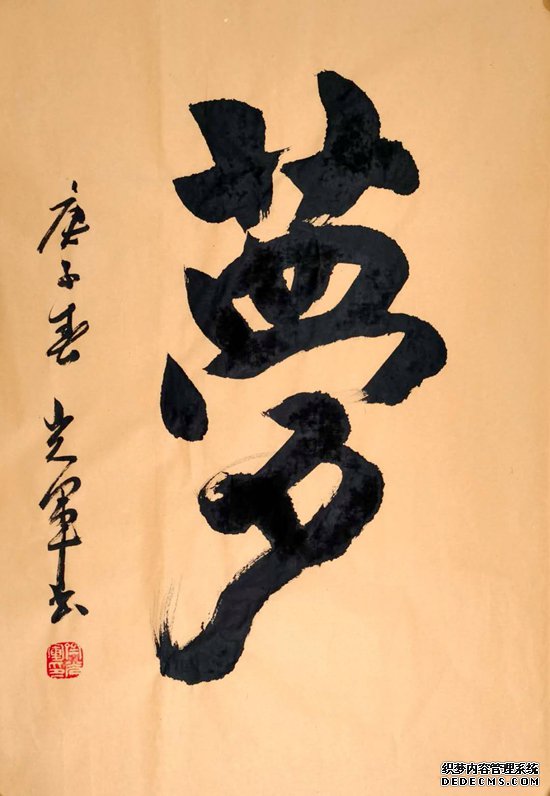 夢
庚子春 光軍书
织梦内容管理系统
DEDECMS.COM